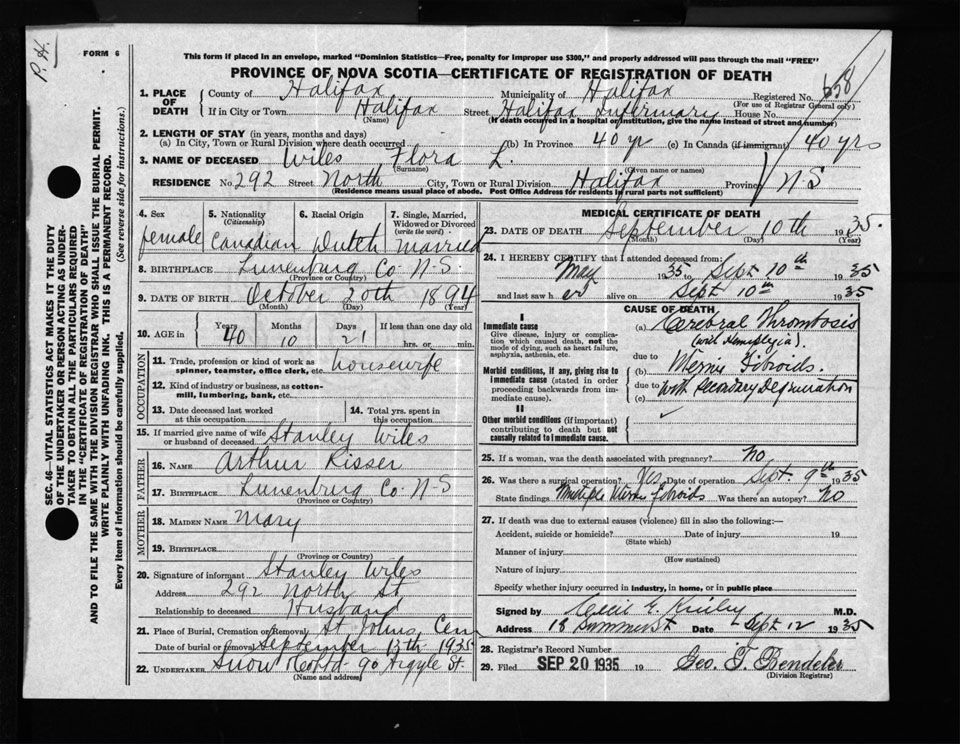 P. H.
FORM 6
This form if placed in an envelope, marked "Dominion Statistics—Free, penalty for improper use $300," and properly addressed will pass through the mail "FREE"
PROVINCE OF NOVA SCOTIA—CERTIFICATE OF REGISTRATION OF DEATH
1. PLACE OF DEATH County of Halifax Municipality of Halifax Registered No. 658
(For use of Registrar General only)
If in City or Town Halifax Street Halifax Infirmary House No.
(Name) (If death occurred in a hospital or institution, give the name instead of street and number)
2. LENGTH OF STAY (in years, months and days)
(a) In City, Town or Rural Division where death occurred (b) In Province 40 yr (c) In Canada (if immigrant) 40 yrs
3. NAME OF DECEASED Wiles Flora L.
(Surname) (Given name or names)
RESIDENCE No. 292 Street North City, Town or Rural Division Halifax Province N-S
(Residence means usual place of abode. Post Office Address for residents in rural parts not sufficient)
4. Sex female
5. Nationality (Citizenship) Canadian
6. Racial Origin Dutch
7. Single, Married, Widowed or Divorced (write the word) Married
8. BIRTHPLACE Lunenburg Co N-S.
(Province or Country)
9. DATE OF BIRTH October 20th 1894
(Month) (Day) (Year)
10. AGE in Years 40 Months 10 Days 21 If less than one day old hrs. or min.
OCCUPATION
11. Trade, profession or kind of work as spinner, teamster, office clerk, etc. housewife
12. Kind of industry or business, as cotton-mill, lumbering, bank, etc.
13. Date deceased last worked at this occupation
14. Total yrs. spent in this occupation
15. If married give name of wife or husband of deceased Stanley Wiles
FATHER
16. NAME Arthur Risser
17. BIRTHPLACE Lunenburg Co N-S
(Province or Country)
MOTHER
18. MAIDEN NAME Mary
19. BIRTHPLACE
(Province or Country)
20. Signature of informant Stanley Wiles
Address 292 North St
Relationship to deceased Husband
21. Place of Burial, Cremation or Removal St Johns Cem
Date of burial or removal September 13th 1935
22. UNDERTAKER Snow & Co Ltd 90 Argyle St.
(Name and address)
MEDICAL CERTIFICATE OF DEATH
23. DATE OF DEATH September 10th 1935
(Month) (Day) (Year)
24. I HEREBY CERTIFY that I attended deceased from:
May 1935 to Sept 10th 1935
and last saw her alive on Sept 10th 1935
CAUSE OF DEATH
I
Immediate cause
Give disease, injury or complication which caused death, not the mode of dying, such as heart failure, asphyxia, asthenia, etc.
(a) Cerebral Thrombosis
(with Hemiplegia).
due to
Morbid conditions, if any, giving rise to immediate cause (stated in order proceeding backwards from immediate cause).
(b) Uterine Fibroids.
due to with Secondary Degeneration
(c)
II
Other morbid conditions (if important) contributing to death but not causally related to immediate cause.
25. If a woman, was the death associated with pregnancy? no
26. Was there a surgical operation? Yes Date of operation Sept. 9th 1935
State findings Multiple Uterine fibroids Was there an autopsy? No
27. If death was due to external causes (violence) fill in also the following:—
Accident, suicide or homicide? Date of injury 19
(State which)
Manner of injury
(How sustained)
Nature of injury
Specify whether injury occurred in industry, in home, or in public place
Signed by Cecil E. Kinley M.D.
Address 18 Summer St Date Sept 12 1935
28. Registrar's Record Number
29. Filed SEP 20 1935 19 Geo. T. Bendeler
(Division Registrar)
SEC. 46—VITAL STATISTICS ACT MAKES IT THE DUTY
OF THE UNDERTAKER OR PERSON ACTING AS UNDER-
TAKER TO OBTAIN ALL THE PARTICULARS REQUIRED
IN THE "CERTIFICATE OF REGISTRATION OF DEATH"
AND TO FILE THE SAME WITH THE DIVISION REGISTRAR WHO SHALL ISSUE THE BURIAL PERMIT.
WRITE PLAINLY WITH UNFADING INK. THIS IS A PERMANENT RECORD.
Every item of information should be carefully supplied. (See reverse side for instructions.)